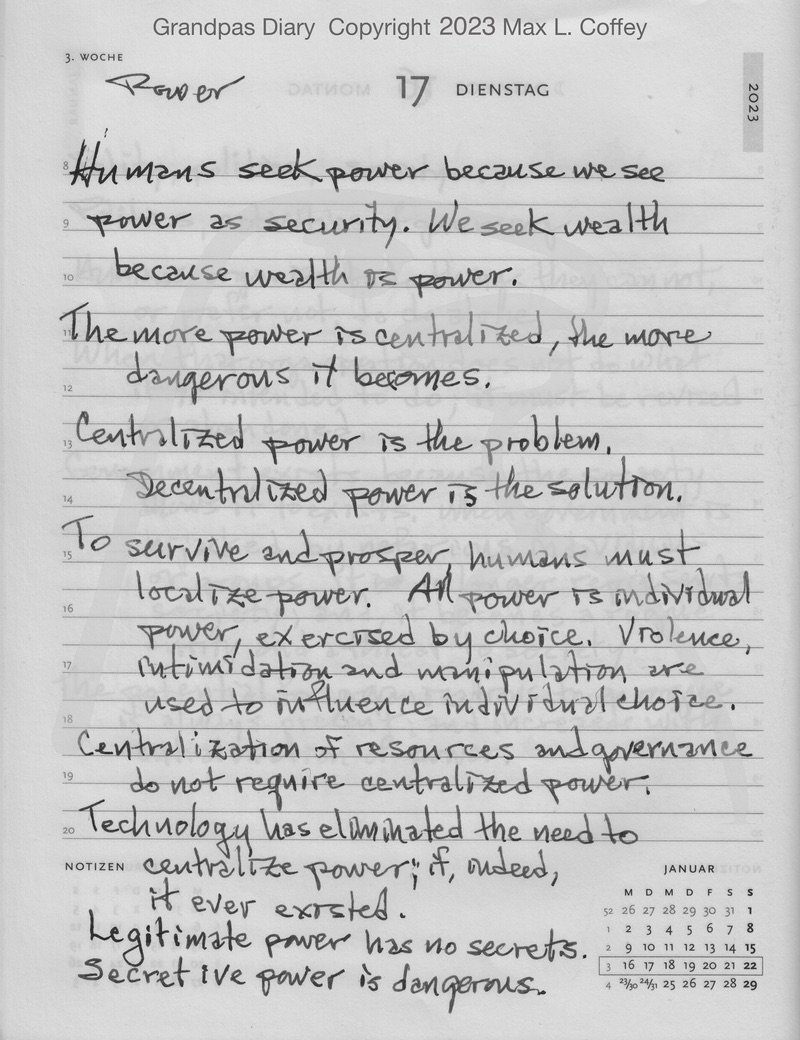 Grandpas Diary Copyright 2023 Max L. Coffey
3. WOCHE
Power 17 DIENSTAG
2023
8 Humans seek power because we see
9 power as security. We seek wealth
10 because wealth is power.
11 The more power is centralized, the more
12 dangerous it becomes.
13 Centralized power is the problem.
14 Decentralized power is the solution.
15 To survive and prosper, humans must
localize power. All power is individual
16 power, exercised by choice. Violence,
17 intimidation and manipulation are
used to influence individual choice.
18 Centralization of resources and governance
19 do not require centralized power.
20 Technology has eliminated the need to
NOTIZEN centralize power; if, indeed,
it ever existed.
Legitimate power has no secrets.
Secretive power is dangerous.
JANUAR
M D M D F S S
52 26 27 28 29 30 31 1
1 2 3 4 5 6 7 8
2 9 10 11 12 13 14 15
3 16 17 18 19 20 21 22
4 23/30 24/31 25 26 27 28 29